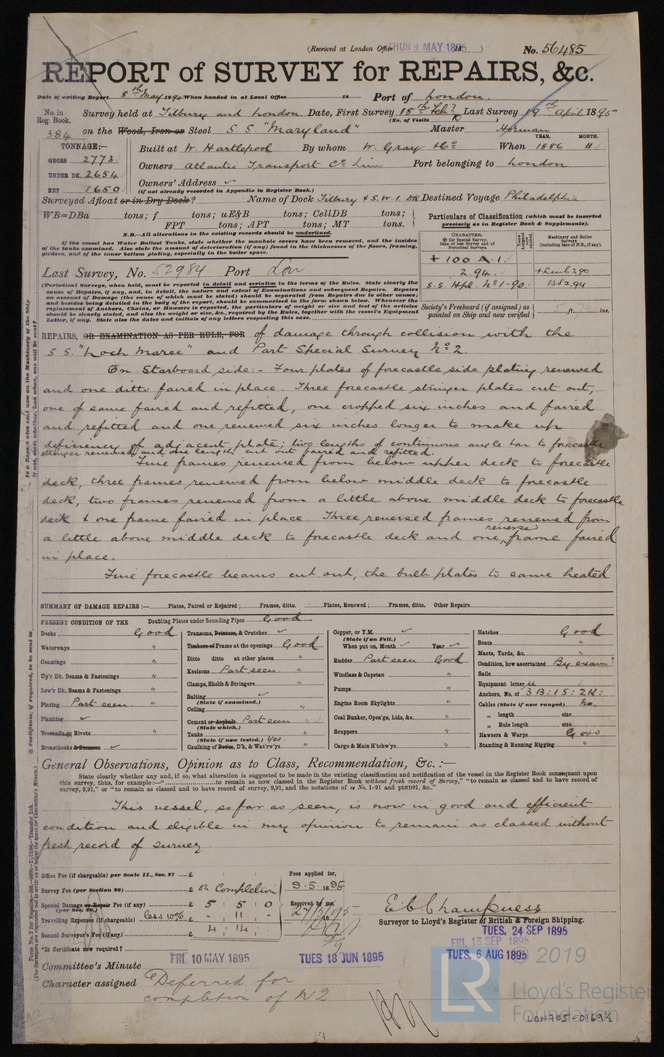 (Received at London Office THUR 9 MAY 1895)
No. 56485
REPORT of SURVEY for REPAIRS, &c.
Date of writing Report 8th May 1895 When handed in at Local Office 18 Port of London.
No. in Reg. Book. Survey held at Tilbury and London. Date, First Survey 15th Feb? Last Survey 19th April 1895
(No. of Visits
384 on the Wood, Iron or Steel S S "Maryland" Master Herman
TONNAGE:— Built at W Hartlepool By whom W. Gray & Co. When 1886 YEAR. MONTH. 11
GROSS 2773 Owners Atlantic Transport Co Lim Port belonging to London
UNDER DK. 2654
NET 1650 Owners' Address
(if not already recorded in Appendix to Register Book.)
Surveyed Afloat or in Dry Dock? Name of Dock Tilbury & S.W.I. DK Destined Voyage Philadelphia
WB=DBa tons; f tons; uE&B tons; CellDB tons;
FPT tons; APT tons; MT tons.
N.B.—All alterations in the existing records should be underlined.
If the vessel has Water Ballast Tanks, state whether the manhole covers have been removed, and the insides of the tanks examined. Also state the amount of deterioration (if any) found in the thickness of the floors, framing, girders, and of the inner bottom plating, especially in the boiler space.
Particulars of Classification (which must be inserted precisely as in Register Book & Supplements).
CHARACTER.
+ 100 A.1.
2.94.
S.S. Hpl. No 1-90.
Society's Freeboard (if assigned) as painted on Ship and now verified
Last Survey, No. 52984 Port Lon
(Periodical Surveys, when held, must be reported in detail and seriatim in the terms of the Rules. State clearly the cause of Repairs, if any, and, in detail, the nature and extent of Examinations and subsequent Repairs. Repairs on account of Damage (the cause of which must be stated) should be separated from Repairs due to other causes;
REPAIRS, OR EXAMINATION AS PER RULE, FOR of damage through collision with the
S.S. "Loch Maree" and Part Special Survey No 2
On Starboard side:- Four plates of forecastle side plating renewed
and one ditto faired in place. Three forecastle stringer plates cut out,
one of same faired and refitted, one cropped six inches and faired
and refitted and one renewed six inches longer to make up
deficiency of adjacent plate; two lengths of continuous angle bar to forecastle
stringer renewed and one length cut out faired and refitted.
Five frames renewed from below upper deck to forecastle
deck, three frames renewed from below middle deck to forecastle
deck, two frames renewed from a little above middle deck to forecastle
deck & one frame faired in place. Three reversed frames renewed from
a little above middle deck to forecastle deck and one reverse frame faired
in place.
Five forecastle beams cut out, the bulb plates to same heated
SUMMARY OF DAMAGE REPAIRS:— Plates, Faired or Repaired; Frames, ditto. Plates, Renewed; Frames, ditto. Other Repairs
PRESENT CONDITION OF THE Doubling Plates under Sounding Pipes Good
Decks Good
Waterways "
Coamings "
Up'r Dk. Beams & Fastenings "
Low'r Dk. Beams & Fastenings "
Plating Part seen "
Planking
Treenails or Rivets "
Breasthooks & Sternson "
Transoms, Pointers, & Crutches
Timbers or Frame at the openings Good
Ditto ditto at other places "
Keelsons Part seen "
Clamps, Shelfs & Stringers "
Salting
(State if examined.)
Ceiling
Cement or Asphalt Part seen "
(State which.)
Tanks
(State if now tested.) Yes
Caulking of Bot'm, D'k, & Wat'rw'ys "
Copper, or Y.M.
(State if on Felt.)
When put on, Month Year
Rudder Part seen Good
Windlass & Capstan "
Pumps "
Engine Room Skylights "
Coal Bunker, Open'gs, Lids, &c. "
Scuppers "
Cargo & Main H'tchw'ys "
Hatches Good
Boats "
Masts, Yards, &c. "
Condition, how ascertained By exam
Sails
Equipment letter
Anchors, No. of 3 B: 1 S: 2 K:
Cables (State if now ranged) No.
" length size
" Rule length size
Hawsers & Warps Good
Standing & Running Rigging "
General Observations, Opinion as to Class, Recommendation, &c.:—
State clearly whether any, and if so, what alteration is suggested to be made in the existing classification and notification of the vessel in the Register Book consequent upon this survey, thus, for example:—" to remain as now classed in the Register Book without fresh record of Survey," "to remain as classed and to have record of survey, 9,91," or "to remain as classed and to have record of survey, 9,91, and the notations of ss No. 1-91 and ptND91, &c."
This vessel, so far as seen, is now in good and efficient
condition and eligible in my opinion to remain as classed without
fresh record of survey.
Office Fee (if chargeable) per Scale II., Sec. 27 £
Survey Fee (per Section 28) £ On Completion
Special Damage or Repair Fee (if any) £ 5 5 0
(per Sec. 28.)
Travelling Expenses (if chargeable) less 10% £ - 11 -
Second Surveyor's Fee (if any) £ 4 : 14 :
Is Certificate now required?
Fees applied for, 9.5.1895
Received by me,
E C Champness
Surveyor to Lloyd's Register of British & Foreign Shipping.
TUES. 24 SEP 1895
FRI. 13 SEP 1895
TUES. 6 AUG 1895
Committee's Minute FRI 10 MAY 1895 TUES 18 JUN 1895
Character assigned Deferred for
completion of No 2
© 2019
LR
Lloyd's Register
Foundation